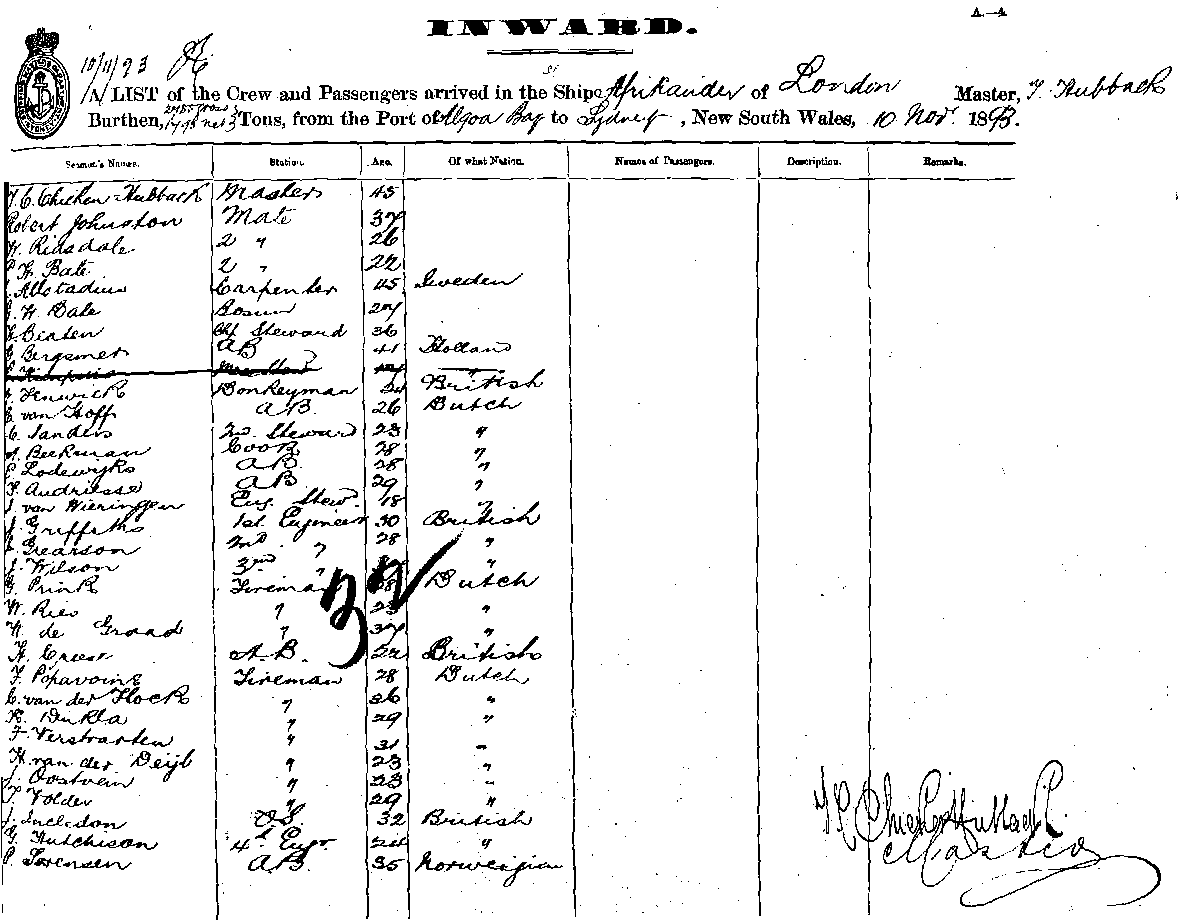 A—A
INWARD.
10/11/93
A LIST of the Crew and Passengers arrived in the Ship Afrikander of London Master, T. Hubback
Burthen, Tons, from the Port of Algoa Bay to Sydney, New South Wales, 10 Nov. 1893.
Seamen's Names. Station. Age. Of what Nation. Names of Passengers. Description. Remarks.
T. C. Chicken Hubback Masters 45
Robert Johnston Mate 37
W. Ridsdale 2 " 26
H. Bate 2 " 22
Carpenter 45 Sweden
W. Bate Bosun 27
Beaten Chf Steward 36
Bergsmer AB 41 Holland
Fenwick Donkeyman British
E van Hoff A.B. 26 Dutch
C. Sanders 2nd. Steward 23 "
A. Beekman Cook 28 "
Lodewyks A.B. 28 "
Audriesse AB 29 "
J. van Wieringen Eng. Stew. 18 "
J. Griffiths 1st. Engineer 30 British
Grearson 2nd " 28 "
J. Wilson 3rd " "
G. Prink Fireman 28 Dutch
32
W. Ries " 23 "
W. de Graad " 37 "
H. A.B. 22 British
F. Popavoine Fireman 28 Dutch
C. van der Hoek " 26 "
" 29 "
F. Verstraaten " 31 "
H. van der Deijl " 23 "
J. Oostvein " 23 "
Volder " 29 "
J. Incledon O.S. 32 British
G. Hutchison 4th Engr. "
P. Sorensen A.B. 35 Norwegian
T C Chicken Hubback
Master